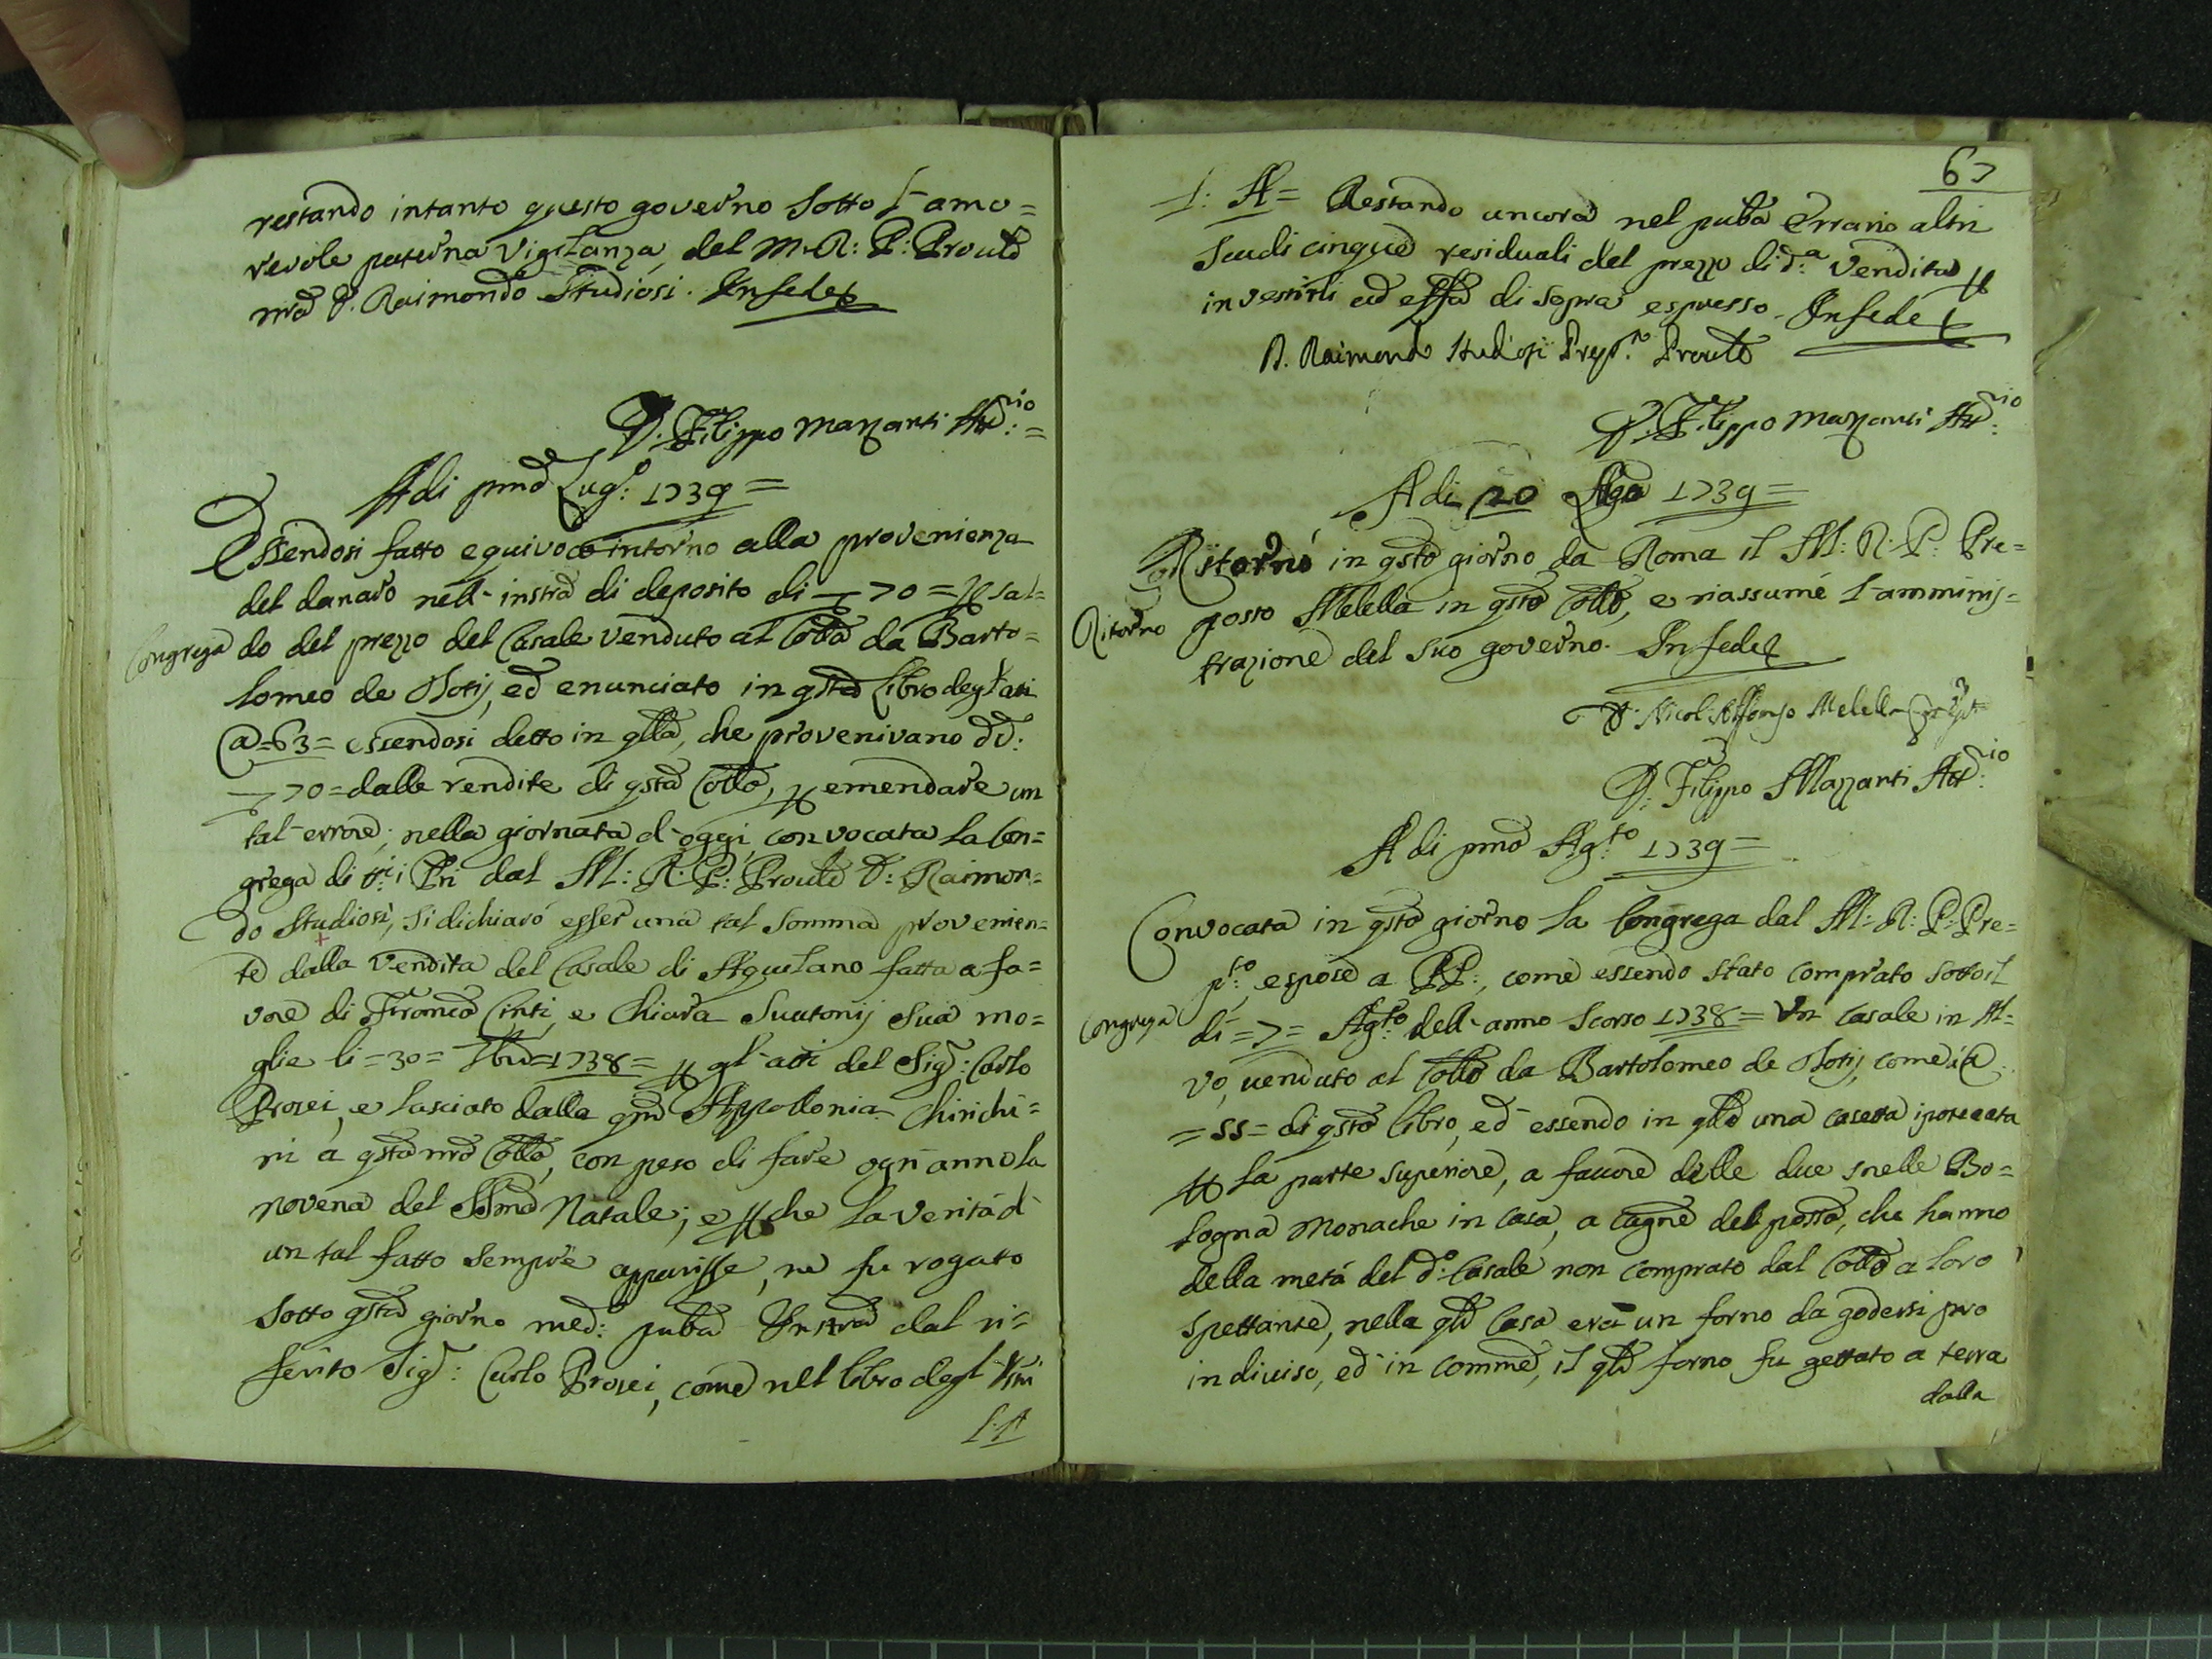 restando intanto questo governo sotto l'amo=
revole paterna vigilanza del M. R: P: Proule
nro D. Raimondo Studiosi. In fede
D. Filippo Mazzanti Att:rio=
A di pmo Lug:o 1739=
Essendosi fatto equivoco intorno alla provenienza
del danaro nell'instro di deposito di 70= p sal=
Congrega
do del prezzo del Casale venduto al Collo da Barto=
lomeo de Notij, ed enunciato in qsto libro degl'atti
@=63= essendosi detto in qllo, che provenivano dd:
70= dalle rendite di qsto Collo, p emendare un
tal'errore; nella giornata d'oggi, convocata la Con=
grega di Pri dal M: R: P: Proule D: Raimon=
do Studiosi, si dichiarò esser una tal somma provenien=
te dalla vendita del Casale di Agutano fatta a fa=
vore di Franco Cinti, e Chiara Suatonij sua mo=
glie li=30= 1738= p gl'atti del Sig: Carlo
Prosei, e lasciato dalla qm Appollonia Chirichi=
ni a qsto nro Collo, con peso di fare ogn'anno la
novena del SSmo Natale; e pche la verità d'
un tal fatto sempre apparisse, ne fu rogato
sotto qsto giorno med: pubo Instro dal ri=
ferito Sig: Carlo Prosei, come nel libro degl'
l:A
67
l: A= Restando ancora nel pubo Errario altri
scudi cinque residuali del prezzo di d:a vendita p
investirli ad effo di sopra espresso. In fede
D. Raimondo Studiosi Proule
D: Filippo Mazzanti Att:rio
A di 20 1739=
Ritornò in qsto giorno da Roma il M: R: P: Pre=
Ritorno
posto Melella in qsto Collo, e riassume l'amminis=
trazione del suo governo. In fede
D: Nicol'Alfonso Melella
D: Filippo Mazzanti Att:rio
A di pmo Ag:to 1739=
Convocata in qsto giorno la Congrega dal M: R: P: Pre=
p:to, espose a PP:, come essendo stato comprato sotto il
Congrega
di=7= Ag:to dell'anno scorso 1738= Un casale in At=
vo, venduto al Collo da Bartolomeo de Notij, come @
=55= di qsto libro, ed essendo in qllo una casetta ipotecata
p la parte superiore, a favore delle due snelle Bo=
logna Monache in casa, a cagne del posso, che hanno
della metà del d:o Casale non comprato dal Collo a loro
spettante, nella qle Casa era un forno da godersi pro
indiviso, ed in comme, il qle forno fu gettato a terra
dalla